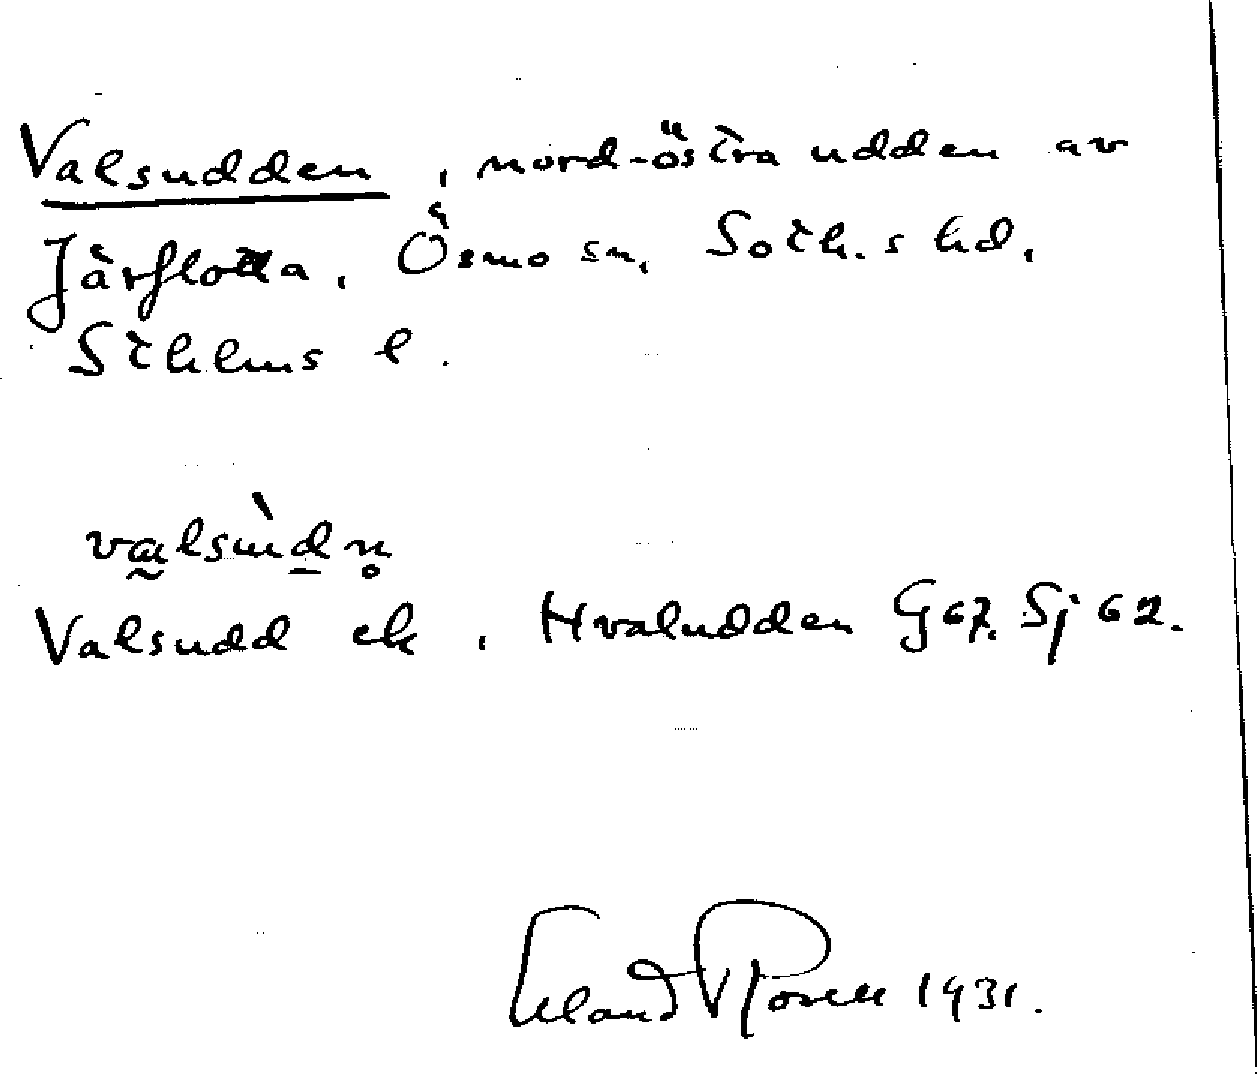 Valsudden, nord-östra udden av
Järflotta, Ösmo sn, Soth.s hd,
Sthlms l.
valsùdn̥
Valsudd ek, Hvaludden G 67. Sj 62.
Erland Rosell 1931.